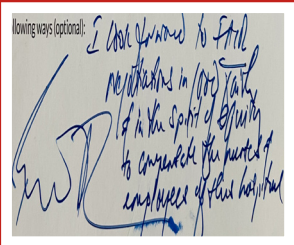 llowing ways (optional):
I look forward to
negotiations in good faith
& in the spirit of equity
to compensate the nurses &
employees of this hospital